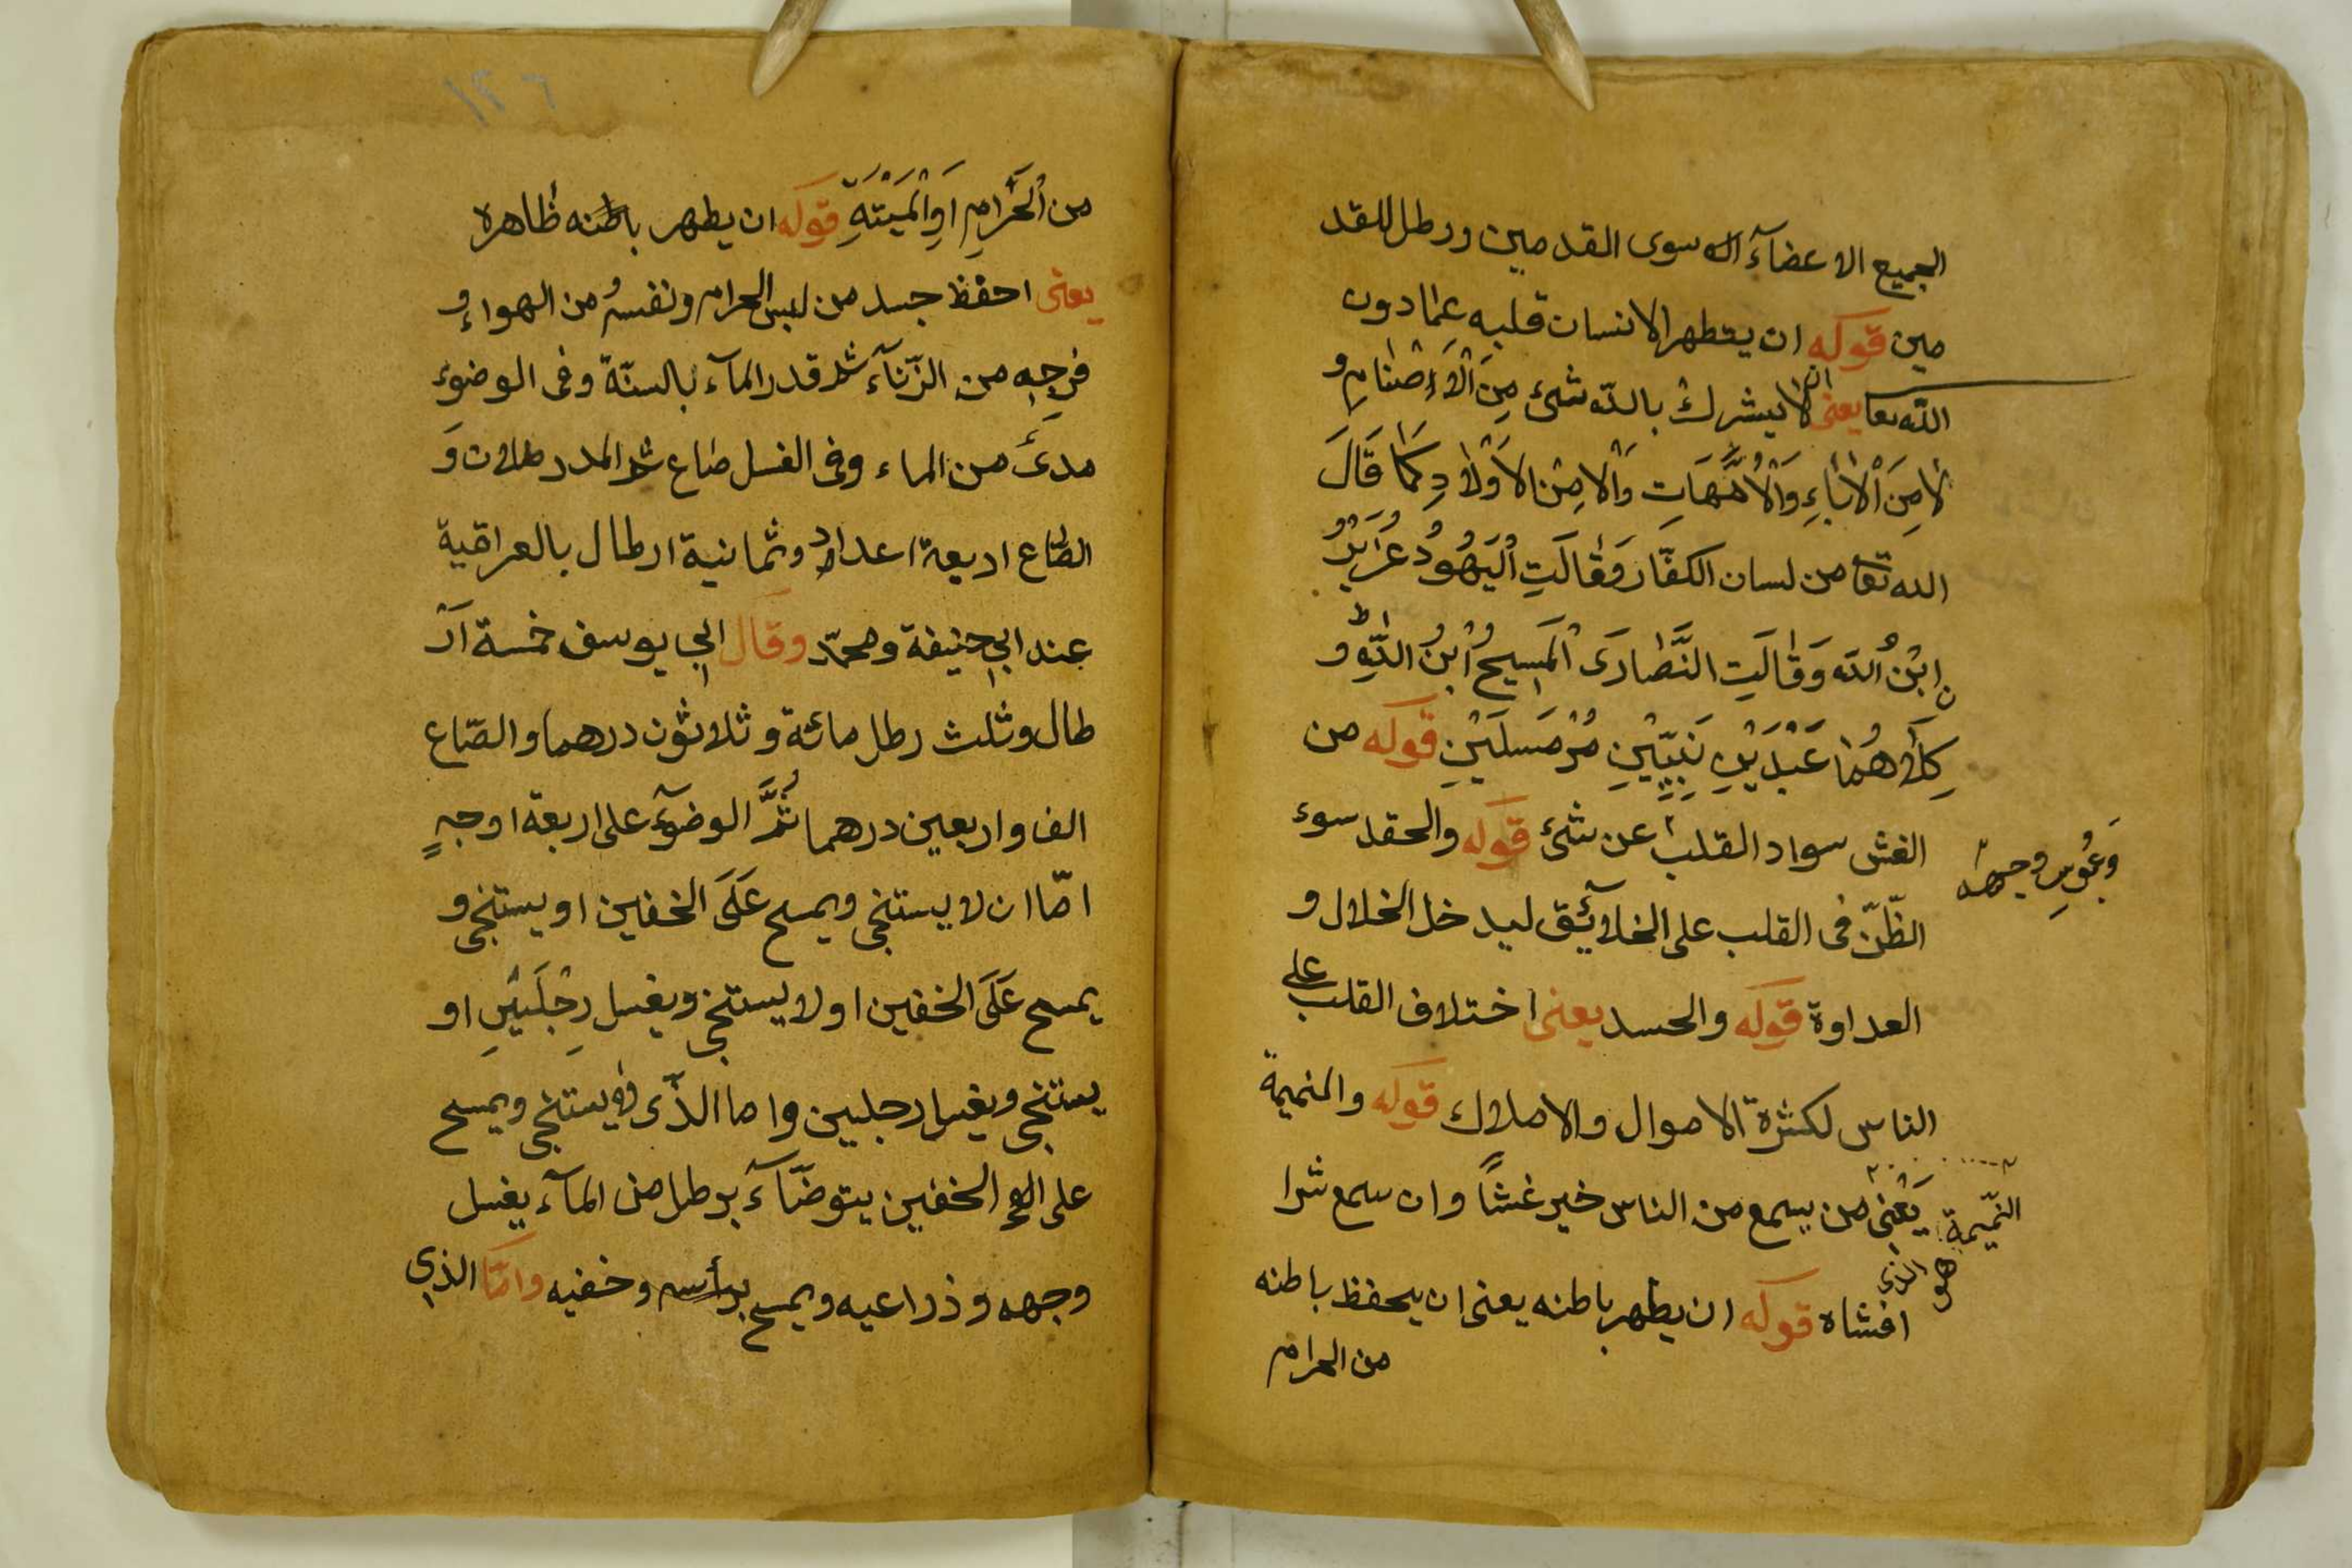 الجميع الاعضآء الا سوى القدمين ورطل للقد
مين قوله ان يتطهر الانسان قلبه عمّا دون
الله تعا يعنى ان لا يشرك بالله شئ مِنَ الْاَصْنٰامِ و
لٰا مِنَ الْاٰبٰاءِ وَالْاُمَّهَاتِ وَالٰا مِنْ الاَوْلٰادِ كَمٰا قَالَ
الله تعا من لسان الكفّار وَقٰالَتِ الْيَهُودُ عُزَيْرُ
نِ ابْنُ الله وَقٰالَتِ النَّصٰارَى الْمَسِيحُ ابْنُ اللّٰهِ ط وَ
كِلٰاهُمٰا عَبْدَيْنِ نَبِيَّيْنِ مُرْسَلَيْنِ قوله من
الغش سواد القلب عن شئ قوله والحقد سوء
وَعُبُوسِ وجهه
الظّنّ فى القلب على الخلآئق ليدخل الخلال و
العداوة قوله والحسد يعنى اختلاف القلب على
الناس لكثرة الاموال والاملاك قوله والنميمة
يَعْنى من يسمع من الناس خير غشًا وان سمع شرا
النّميمة هو الذى
افشاه قوله ان يطهر باطنه يعنى ان يحفظ باطنه
من الحرام
١٢٦
من الْحَرٰامِ اَوِ الْمَيْتَةِ قوله ان يطهر باطنه ظاهره
يعنى احفظ جسد من لبس الحرام ونفسهُ من الهواء و
فرجِه من الزّنآء ثم قدر المآء بالسنّة وفى الوضوء
مدىً من الماء وفى الغسل صاع ثم المد رطلان وَ
الصّاع اربعة اعداد وثمانية ارطال بالعراقية
عند ابى حنيفة ومحمّد وقال ابى يوسف خمسة اَرْ
طال وثلث رطل مائة وثلاثون درهما والصّاع
الف واربعين درهما ثُمَّ الوضوٓء على اربعة اوجهٍ
امّا ان لا يستنجى ويمسح عَلَى الخفين او يستنجى و
يمسح عَلَى الخفين او لا يستنجى ويغسل رِجْلَيْنِ او
يستنجى ويغسل رجلين واما الّذى لا يستنجى ويمسح
على الخفين يتوضّآء برطل من المآء يغسل
وجهه وذراعيه ويمسح برأسه وخفيه وامّا الذى